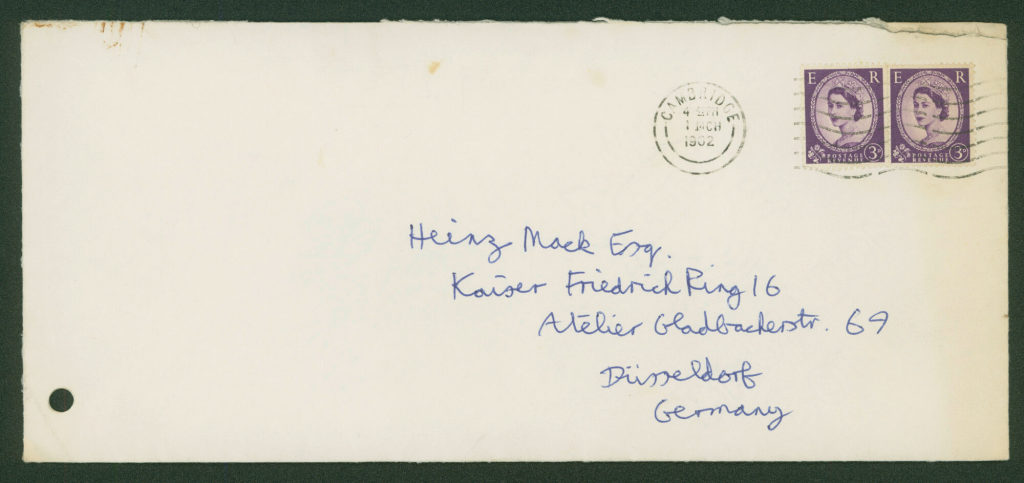 CAMBRIDGE
1 MCH
1962
E R
POSTAGE
REVENUE
3D
E R
POSTAGE
REVENUE
3D
Heinz Mack Esq.
Kaiser Friedrich Ring 16
Atelier Gladbacherstr. 69
Düsseldorf
Germany